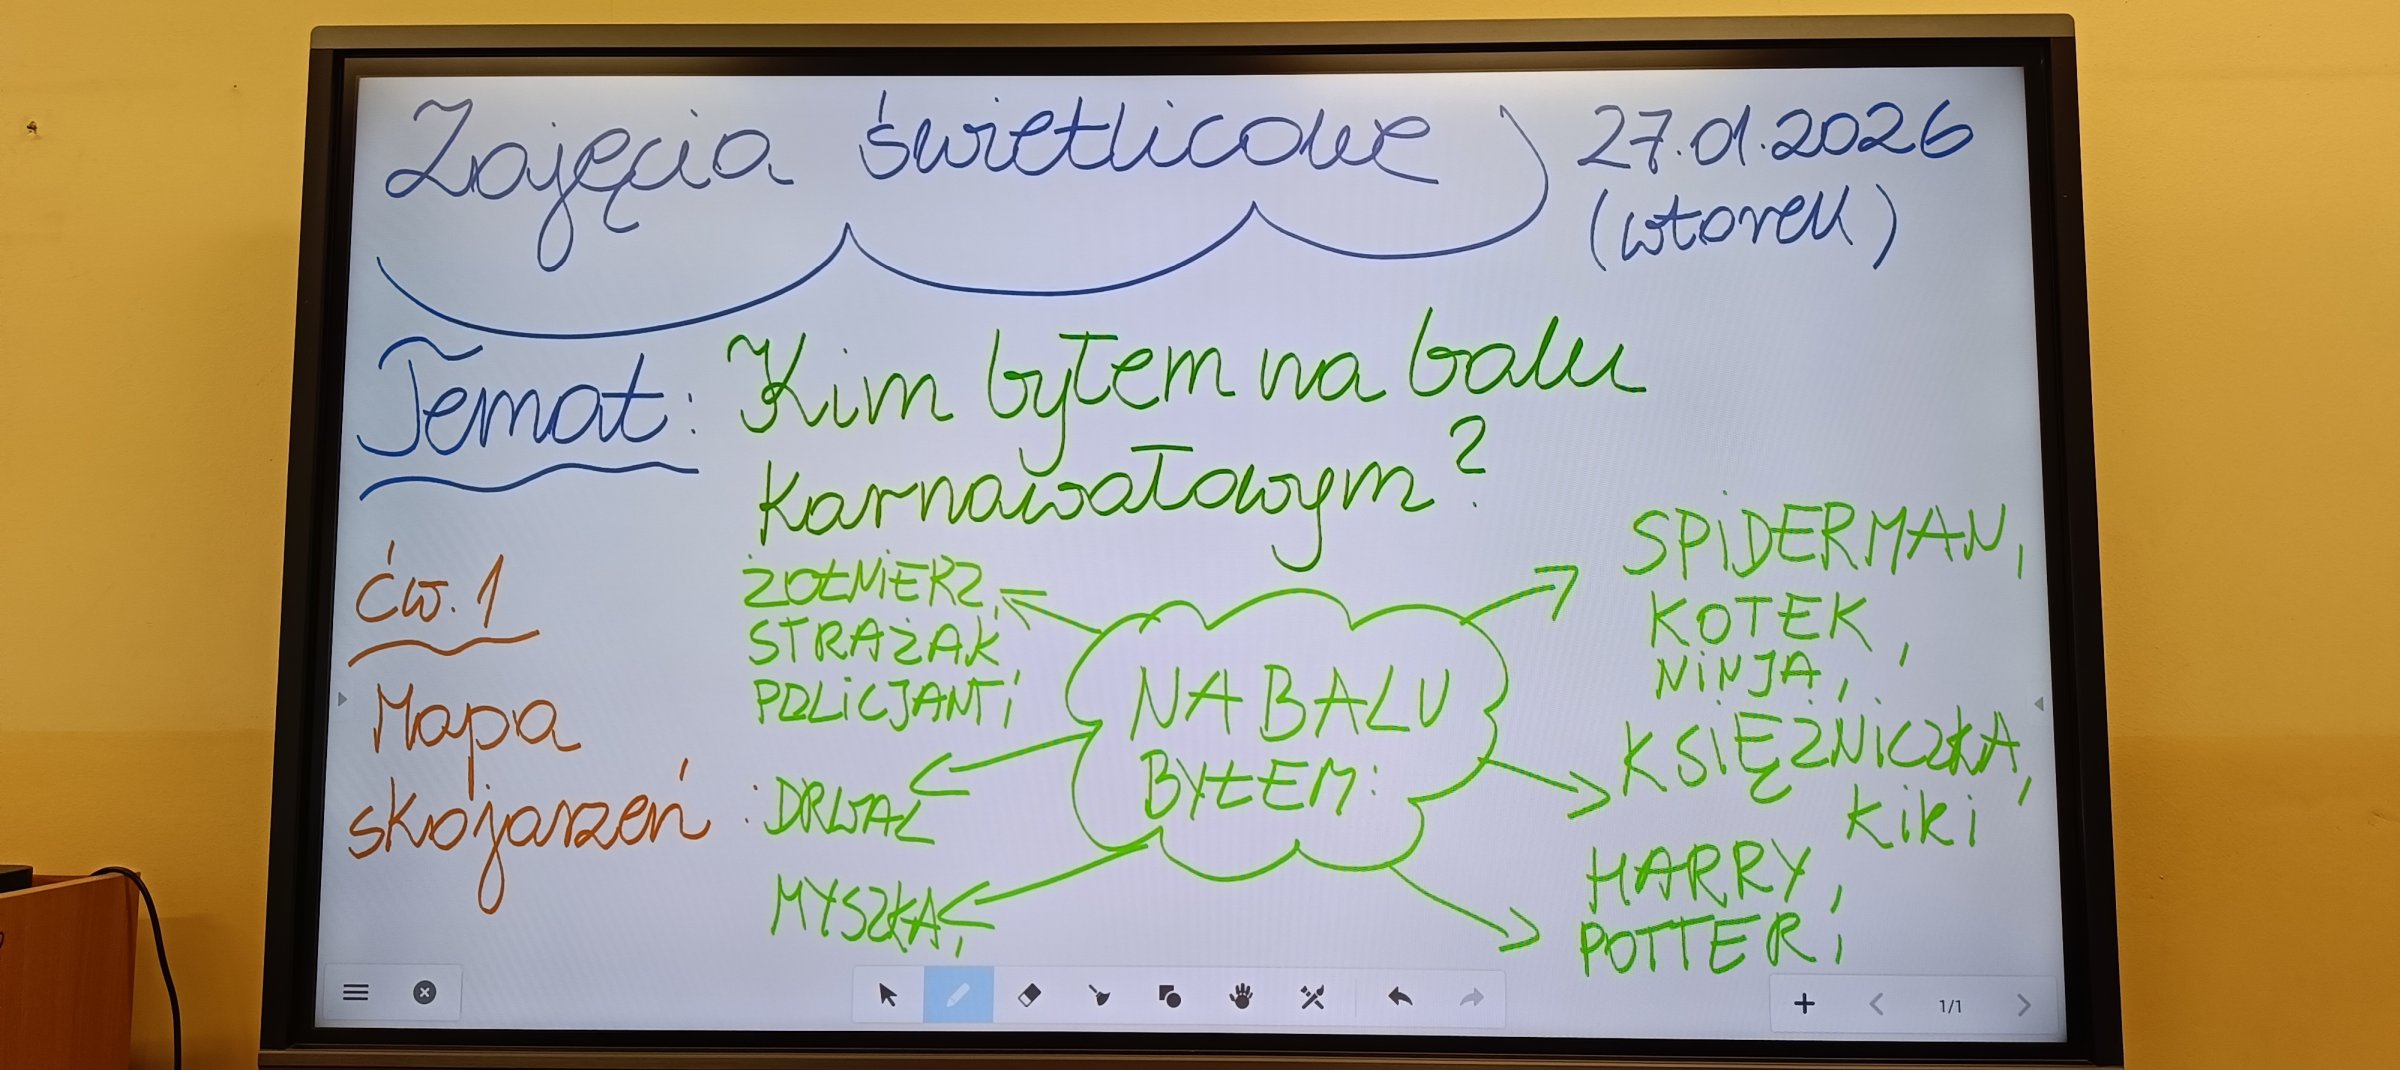 Zajęcia świetlicowe
27.01.2026
(wtorek)
Temat: Kim byłem na balu
karnawałowym?
ćw. 1
Mapa
skojarzeń:
ŻOŁNIERZ,
STRAŻAK,
POLICJANT,
DRWAL
MYSZKA,
NA BALU
BYŁEM:
SPIDERMAN,
KOTEK,
NINJA,
KSIĘŻNICZKA,
KiKi
HARRY,
POTTER,
1/1